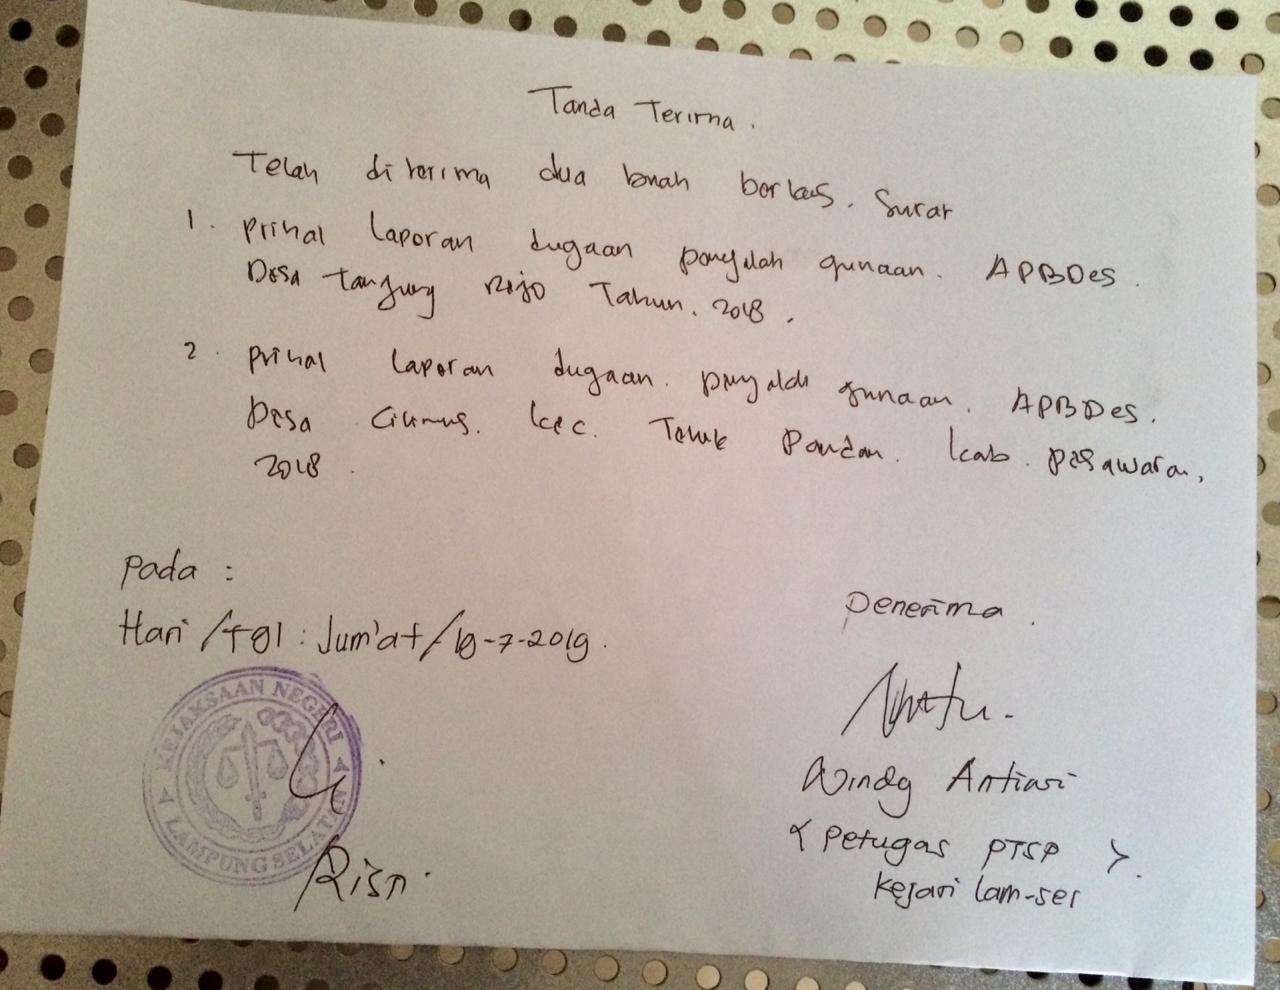 Tanda Terima.
Telah diterima dua buah berkas. Surat
1. prihal laporan dugaan penyalah gunaan. APBDes.
Desa Tanjung Rejo Tahun. 2018.
2. prihal laporan dugaan. penyalah gunaan. APBDes.
Desa Cilimus. kec. Teluk Pandan. kab. pesawaran,
2018.
pada :
Hari /tgl : Jum'at/19-7-2019.
penerima.
KEJAKSAAN NEGERI
LAMPUNG SELATAN
Windy Antiasi
< petugas PTSP >.
kejari lam-sel